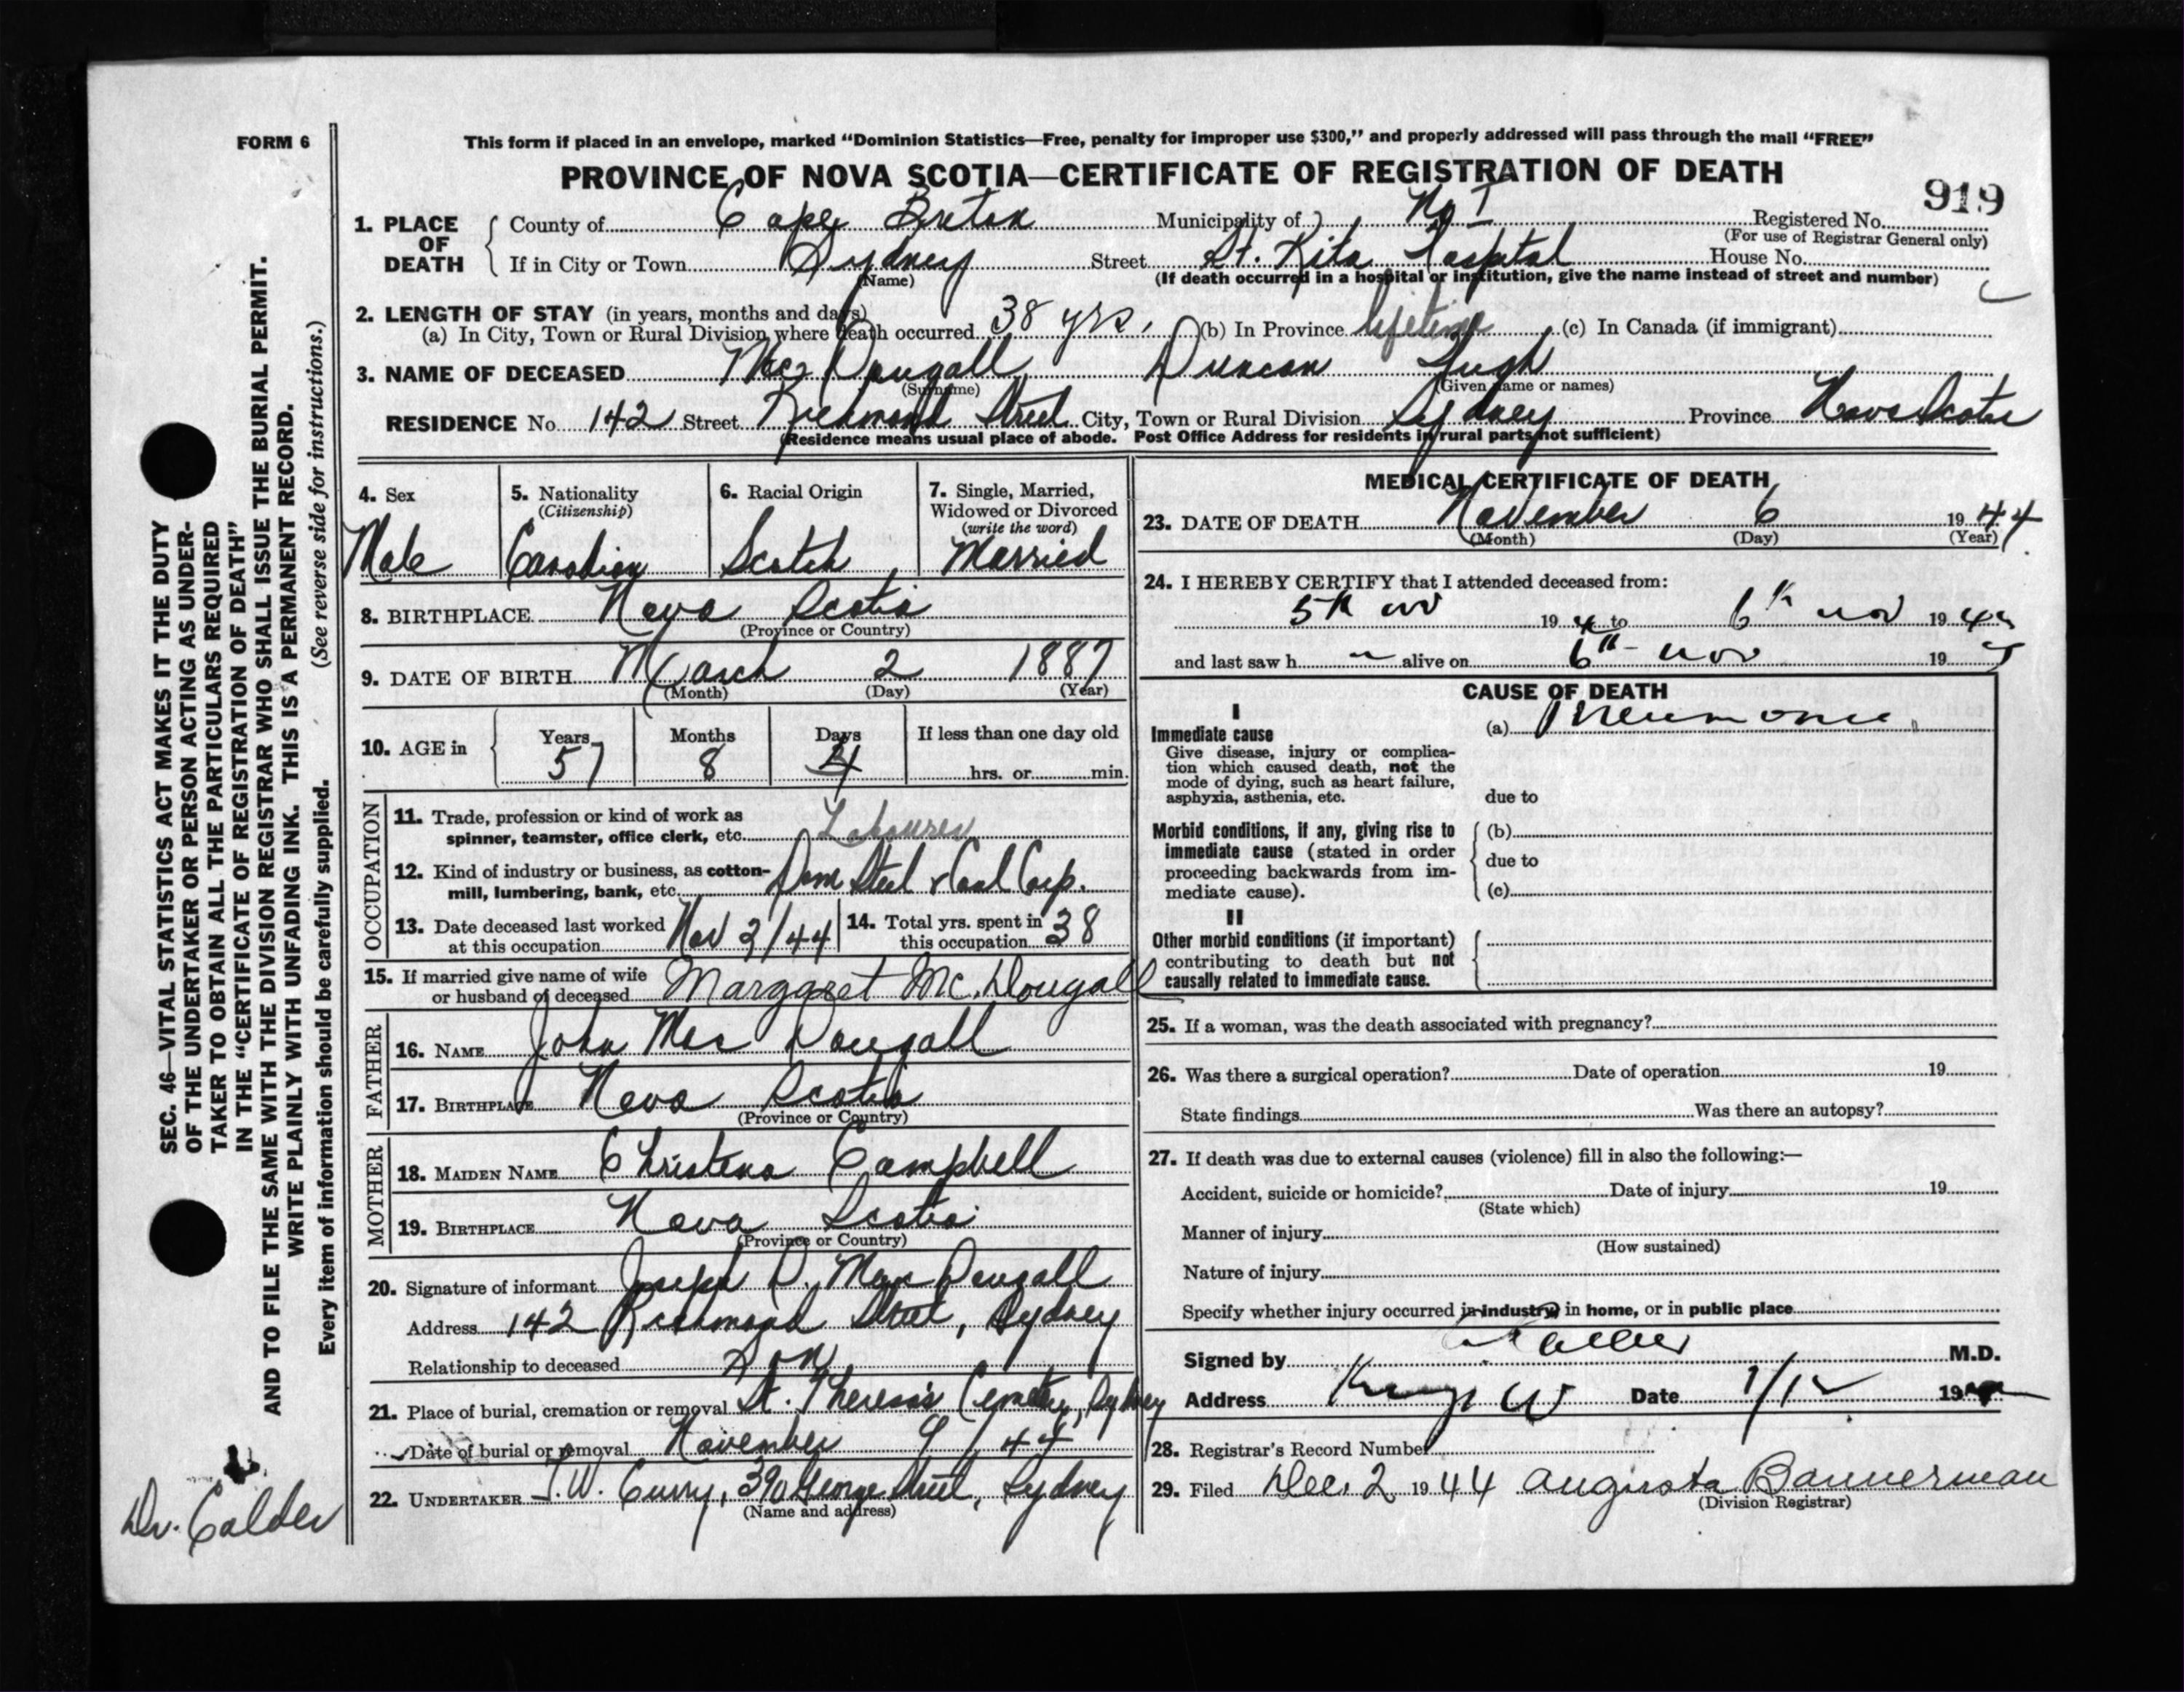 FORM 6
This form if placed in an envelope, marked “Dominion Statistics—Free, penalty for improper use $300,” and properly addressed will pass through the mail “FREE”
PROVINCE OF NOVA SCOTIA—CERTIFICATE OF REGISTRATION OF DEATH
919
1. PLACE OF DEATH
County of Cape Breton Municipality of No I Registered No.
(For use of Registrar General only)
If in City or Town Sydney Street St. Rita Hospital House No.
(Name) (If death occurred in a hospital or institution, give the name instead of street and number)
2. LENGTH OF STAY (in years, months and days)
(a) In City, Town or Rural Division where death occurred 38 yrs. (b) In Province lifetime (c) In Canada (if immigrant)
3. NAME OF DECEASED MacDougall Duncan Hugh
(Surname) (Given name or names)
RESIDENCE No. 142 Street Richmond Street City, Town or Rural Division Sydney Province Nova Scotia
(Residence means usual place of abode. Post Office Address for residents in rural parts not sufficient)
4. Sex Male
5. Nationality (Citizenship) Canadian
6. Racial Origin Scotch
7. Single, Married, Widowed or Divorced (write the word) Married
8. BIRTHPLACE Nova Scotia
(Province or Country)
9. DATE OF BIRTH March 2 1887
(Month) (Day) (Year)
10. AGE in Years 57 Months 8 Days 4 If less than one day old
hrs. or min.
OCCUPATION
11. Trade, profession or kind of work as
spinner, teamster, office clerk, etc. Labourer
12. Kind of industry or business, as cotton-
mill, lumbering, bank, etc. Dom Steel & Coal Corp.
13. Date deceased last worked
at this occupation Nov 2/44
14. Total yrs. spent in
this occupation 38
15. If married give name of wife
or husband of deceased Margaret Mc.Dougall
FATHER
16. NAME John Mac Dougall
17. BIRTHPLACE Nova Scotia
(Province or Country)
MOTHER
18. MAIDEN NAME Christena Campbell
19. BIRTHPLACE Nova Scotia
(Province or Country)
20. Signature of informant Joseph D. MacDougall
Address 142 Richmond Street, Sydney
Relationship to deceased Son
21. Place of burial, cremation or removal St. Theresa's Cemetery, Sydney
Date of burial or removal November 9/44
22. UNDERTAKER T.W. Curry, 390 George Street, Sydney
(Name and address)
MEDICAL CERTIFICATE OF DEATH
23. DATE OF DEATH November 6 1944
(Month) (Day) (Year)
24. I HEREBY CERTIFY that I attended deceased from:
5th nov 19 4 to 6th nov 19 44
and last saw h alive on 6th nov 19
CAUSE OF DEATH
I
Immediate cause
Give disease, injury or complica-
tion which caused death, not the
mode of dying, such as heart failure,
asphyxia, asthenia, etc.
(a) Pneumonia
due to
Morbid conditions, if any, giving rise to
immediate cause (stated in order
proceeding backwards from im-
mediate cause).
(b)
due to
(c)
II
Other morbid conditions (if important)
contributing to death but not
causally related to immediate cause.
25. If a woman, was the death associated with pregnancy?
26. Was there a surgical operation? Date of operation 19
State findings Was there an autopsy?
27. If death was due to external causes (violence) fill in also the following:—
Accident, suicide or homicide? Date of injury 19
(State which)
Manner of injury
(How sustained)
Nature of injury
Specify whether injury occurred in industry, in home, or in public place
Signed by M.D.
Address Date 1/12 19
28. Registrar's Record Number
29. Filed Dec. 2 1944 Augusta Bannerman
(Division Registrar)
SEC. 46—VITAL STATISTICS ACT MAKES IT THE DUTY
OF THE UNDERTAKER OR PERSON ACTING AS UNDER-
TAKER TO OBTAIN ALL THE PARTICULARS REQUIRED
IN THE “CERTIFICATE OF REGISTRATION OF DEATH”
AND TO FILE THE SAME WITH THE DIVISION REGISTRAR WHO SHALL ISSUE THE BURIAL PERMIT.
WRITE PLAINLY WITH UNFADING INK. THIS IS A PERMANENT RECORD.
(See reverse side for instructions.)
Every item of information should be carefully supplied.
Dr. Calder